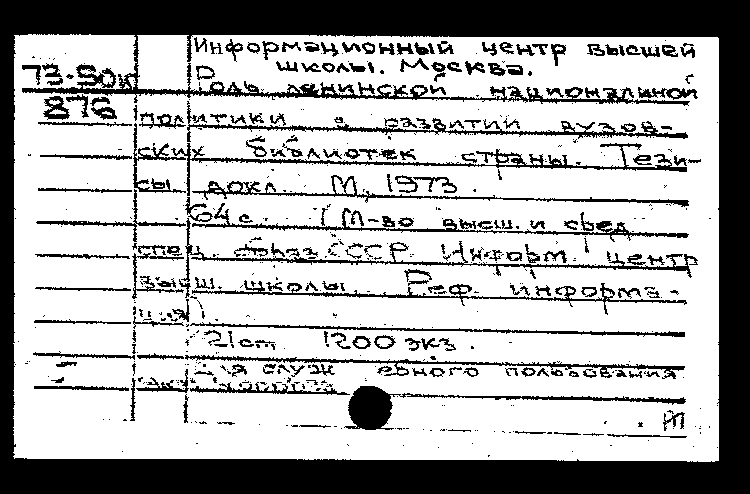 Информационный центр высшей
школы. Москва.
73-50к Роль ленинской национальной
876
политики в развитии вузов-
ских библиотек страны. Тези-
сы докл. М., 1973.
64 с. (М-во высш. и сред.
спец. образ. СССР. Информ. центр
высш. школы. Реф. информа-
ция).
21 см 1200 экз.
Для служебного пользования